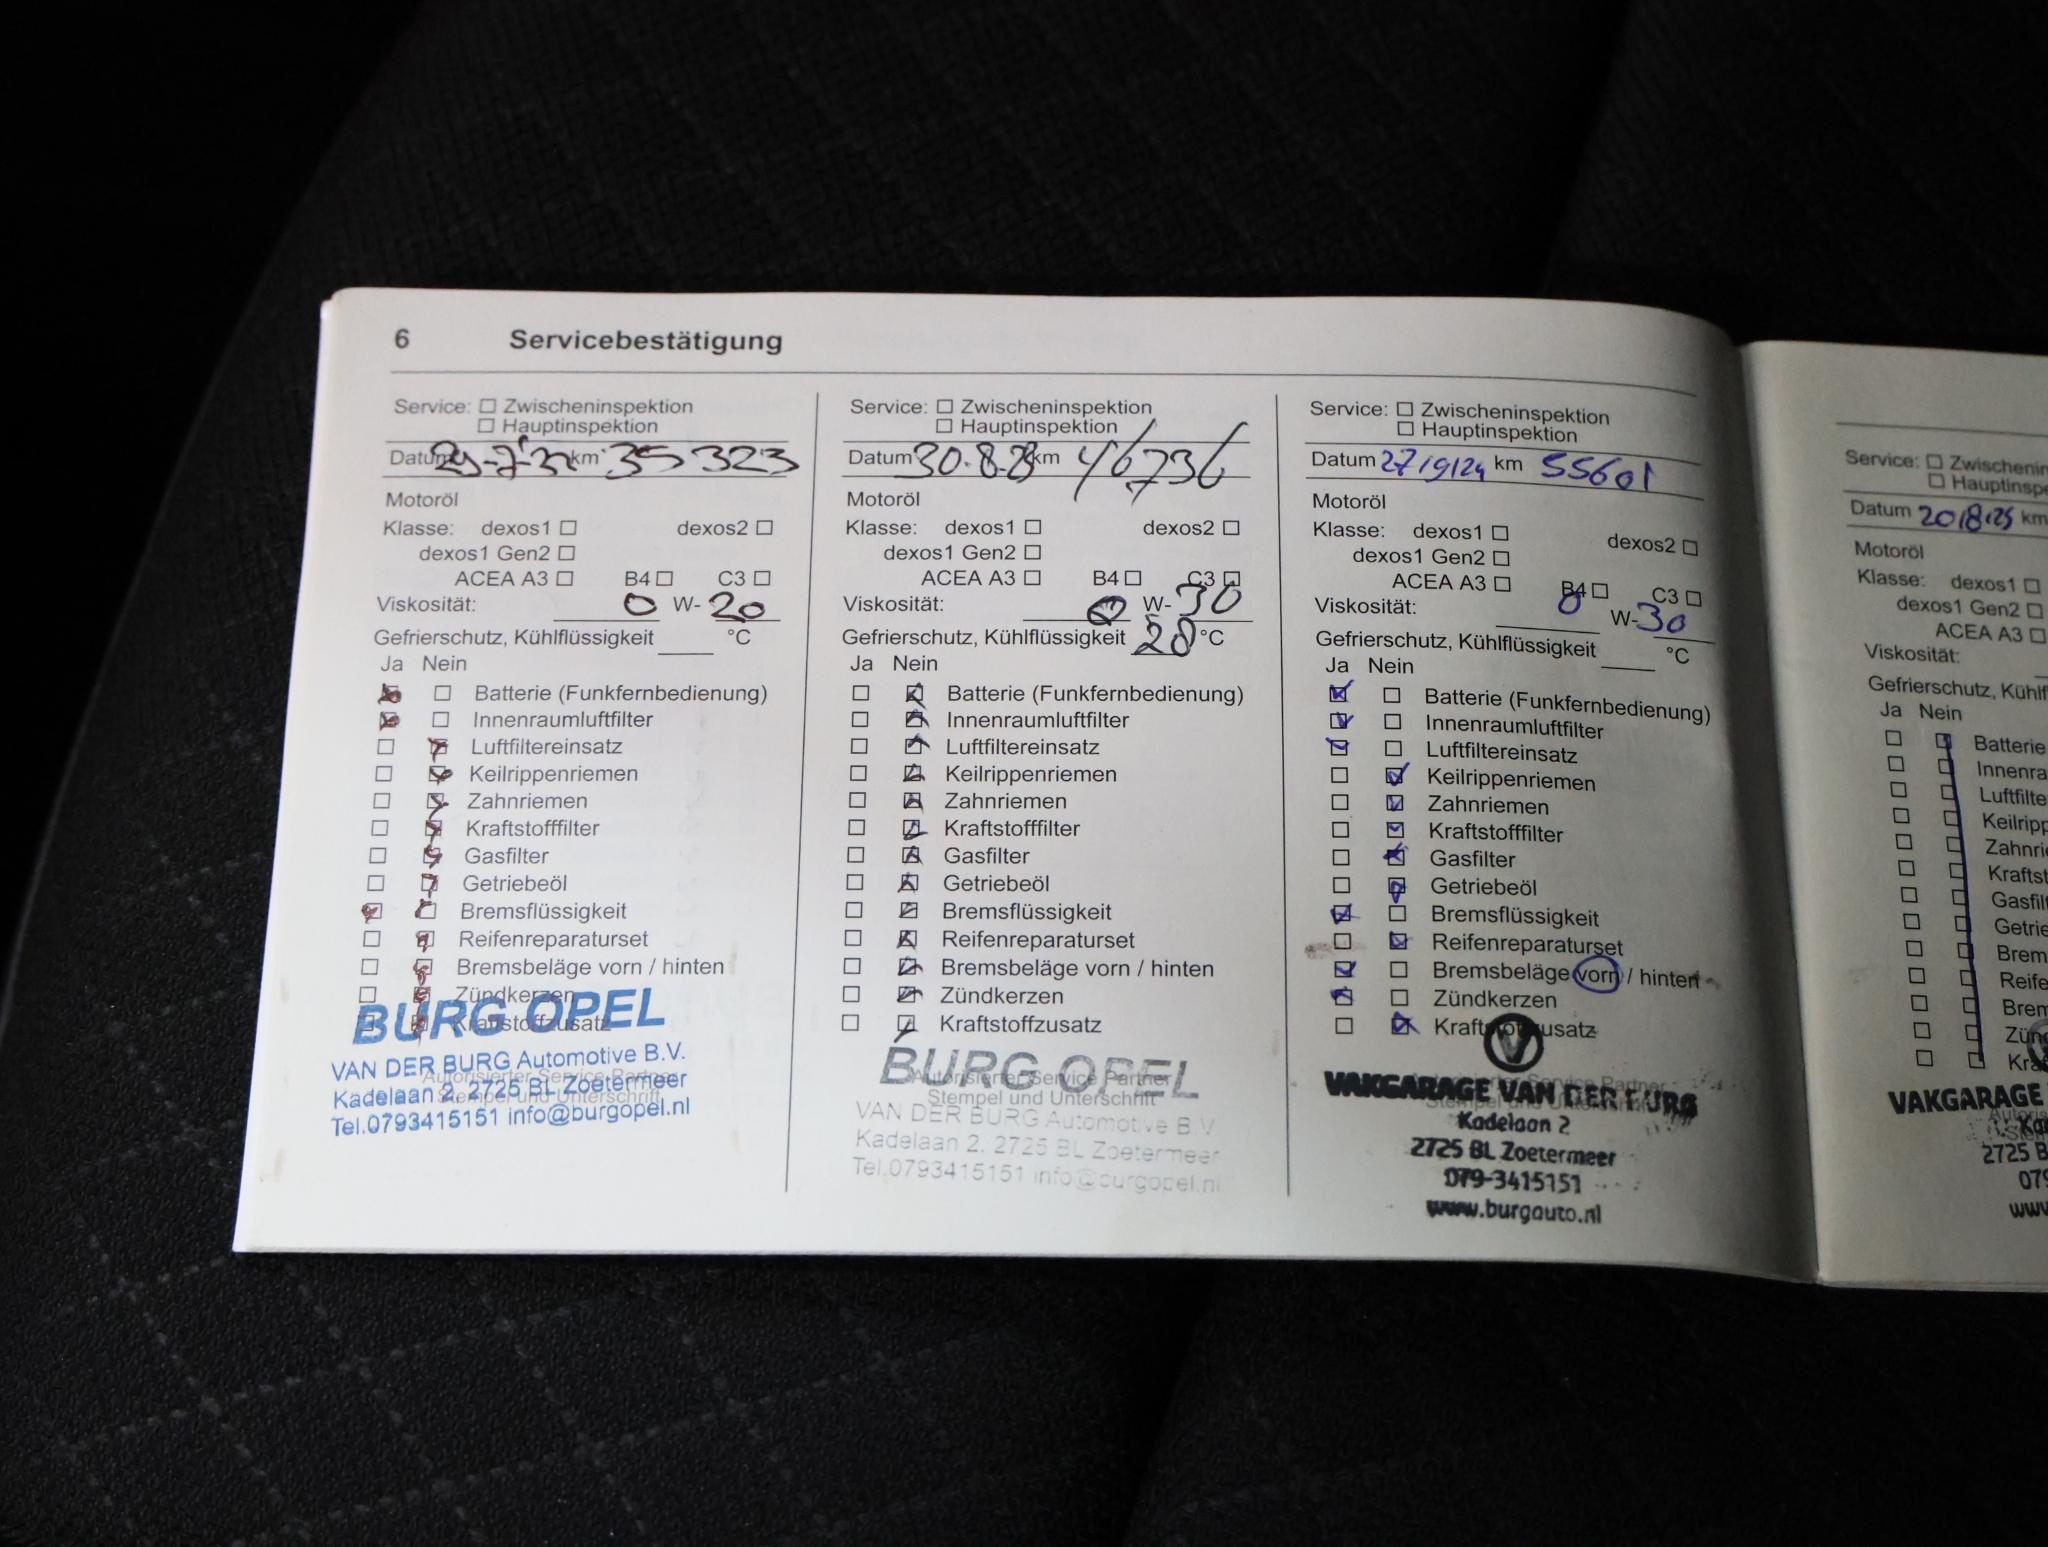 6 Servicebestätigung
Service: Zwischeninspektion
Hauptinspektion
Datum km 35 323
Motoröl
Klasse: dexos1 dexos2
dexos1 Gen2
ACEA A3 B4 C3
Viskosität: 0 W-20
Gefrierschutz, Kühlflüssigkeit °C
Ja Nein
Batterie (Funkfernbedienung)
Innenraumluftfilter
Luftfiltereinsatz
Keilrippenriemen
Zahnriemen
Kraftstofffilter
Gasfilter
Getriebeöl
Bremsflüssigkeit
Reifenreparaturset
Bremsbeläge vorn / hinten
Zündkerzen
Kraftstoffzusatz
BURG OPEL
VAN DER BURG Automotive B.V.
Autorisierter Service Partner
Kadelaan 2, 2725 BL Zoetermeer
Stempel und Unterschrift
Tel.0793415151 info@burgopel.nl
Service: Zwischeninspektion
Hauptinspektion
Datum 30.8.23 km 46736
Motoröl
Klasse: dexos1 dexos2
dexos1 Gen2
ACEA A3 B4 C3
Viskosität: 0 W-30
Gefrierschutz, Kühlflüssigkeit 28 °C
Ja Nein
Batterie (Funkfernbedienung)
Innenraumluftfilter
Luftfiltereinsatz
Keilrippenriemen
Zahnriemen
Kraftstofffilter
Gasfilter
Getriebeöl
Bremsflüssigkeit
Reifenreparaturset
Bremsbeläge vorn / hinten
Zündkerzen
Kraftstoffzusatz
BURG OPEL
Autorisierter Service Partner
Stempel und Unterschrift
VAN DER BURG Automotive B.V
Kadelaan 2, 2725 BL Zoetermeer
Tel.0793415151 info@burgopel.nl
Service: Zwischeninspektion
Hauptinspektion
Datum 27/9/24 km 55601
Motoröl
Klasse: dexos1 dexos2
dexos1 Gen2
ACEA A3 B4 C3
Viskosität: 0 W-30
Gefrierschutz, Kühlflüssigkeit °C
Ja Nein
Batterie (Funkfernbedienung)
Innenraumluftfilter
Luftfiltereinsatz
Keilrippenriemen
Zahnriemen
Kraftstofffilter
Gasfilter
Getriebeöl
Bremsflüssigkeit
Reifenreparaturset
Bremsbeläge vorn / hinten
Zündkerzen
Kraftstoffzusatz
VAKGARAGE VAN DER BURG
Autorisierter Service Partner
Stempel und Unterschrift
Kadelaan 2
2725 BL Zoetermeer
079-3415151
www.burgauto.nl
Service: Zwischenin
Hauptinspe
Datum 20/8.25 km
Motoröl
Klasse: dexos1
dexos1 Gen2
ACEA A3
Viskosität:
Gefrierschutz, Kühlf
Ja Nein
Batterie
Innenra
Luftfilte
Keilripp
Zahnrie
Kraftst
Gasfil
Getrie
Brem
Reife
Brem
Zün
Kra
VAKGARAGE
Ka
2725 B
079
www